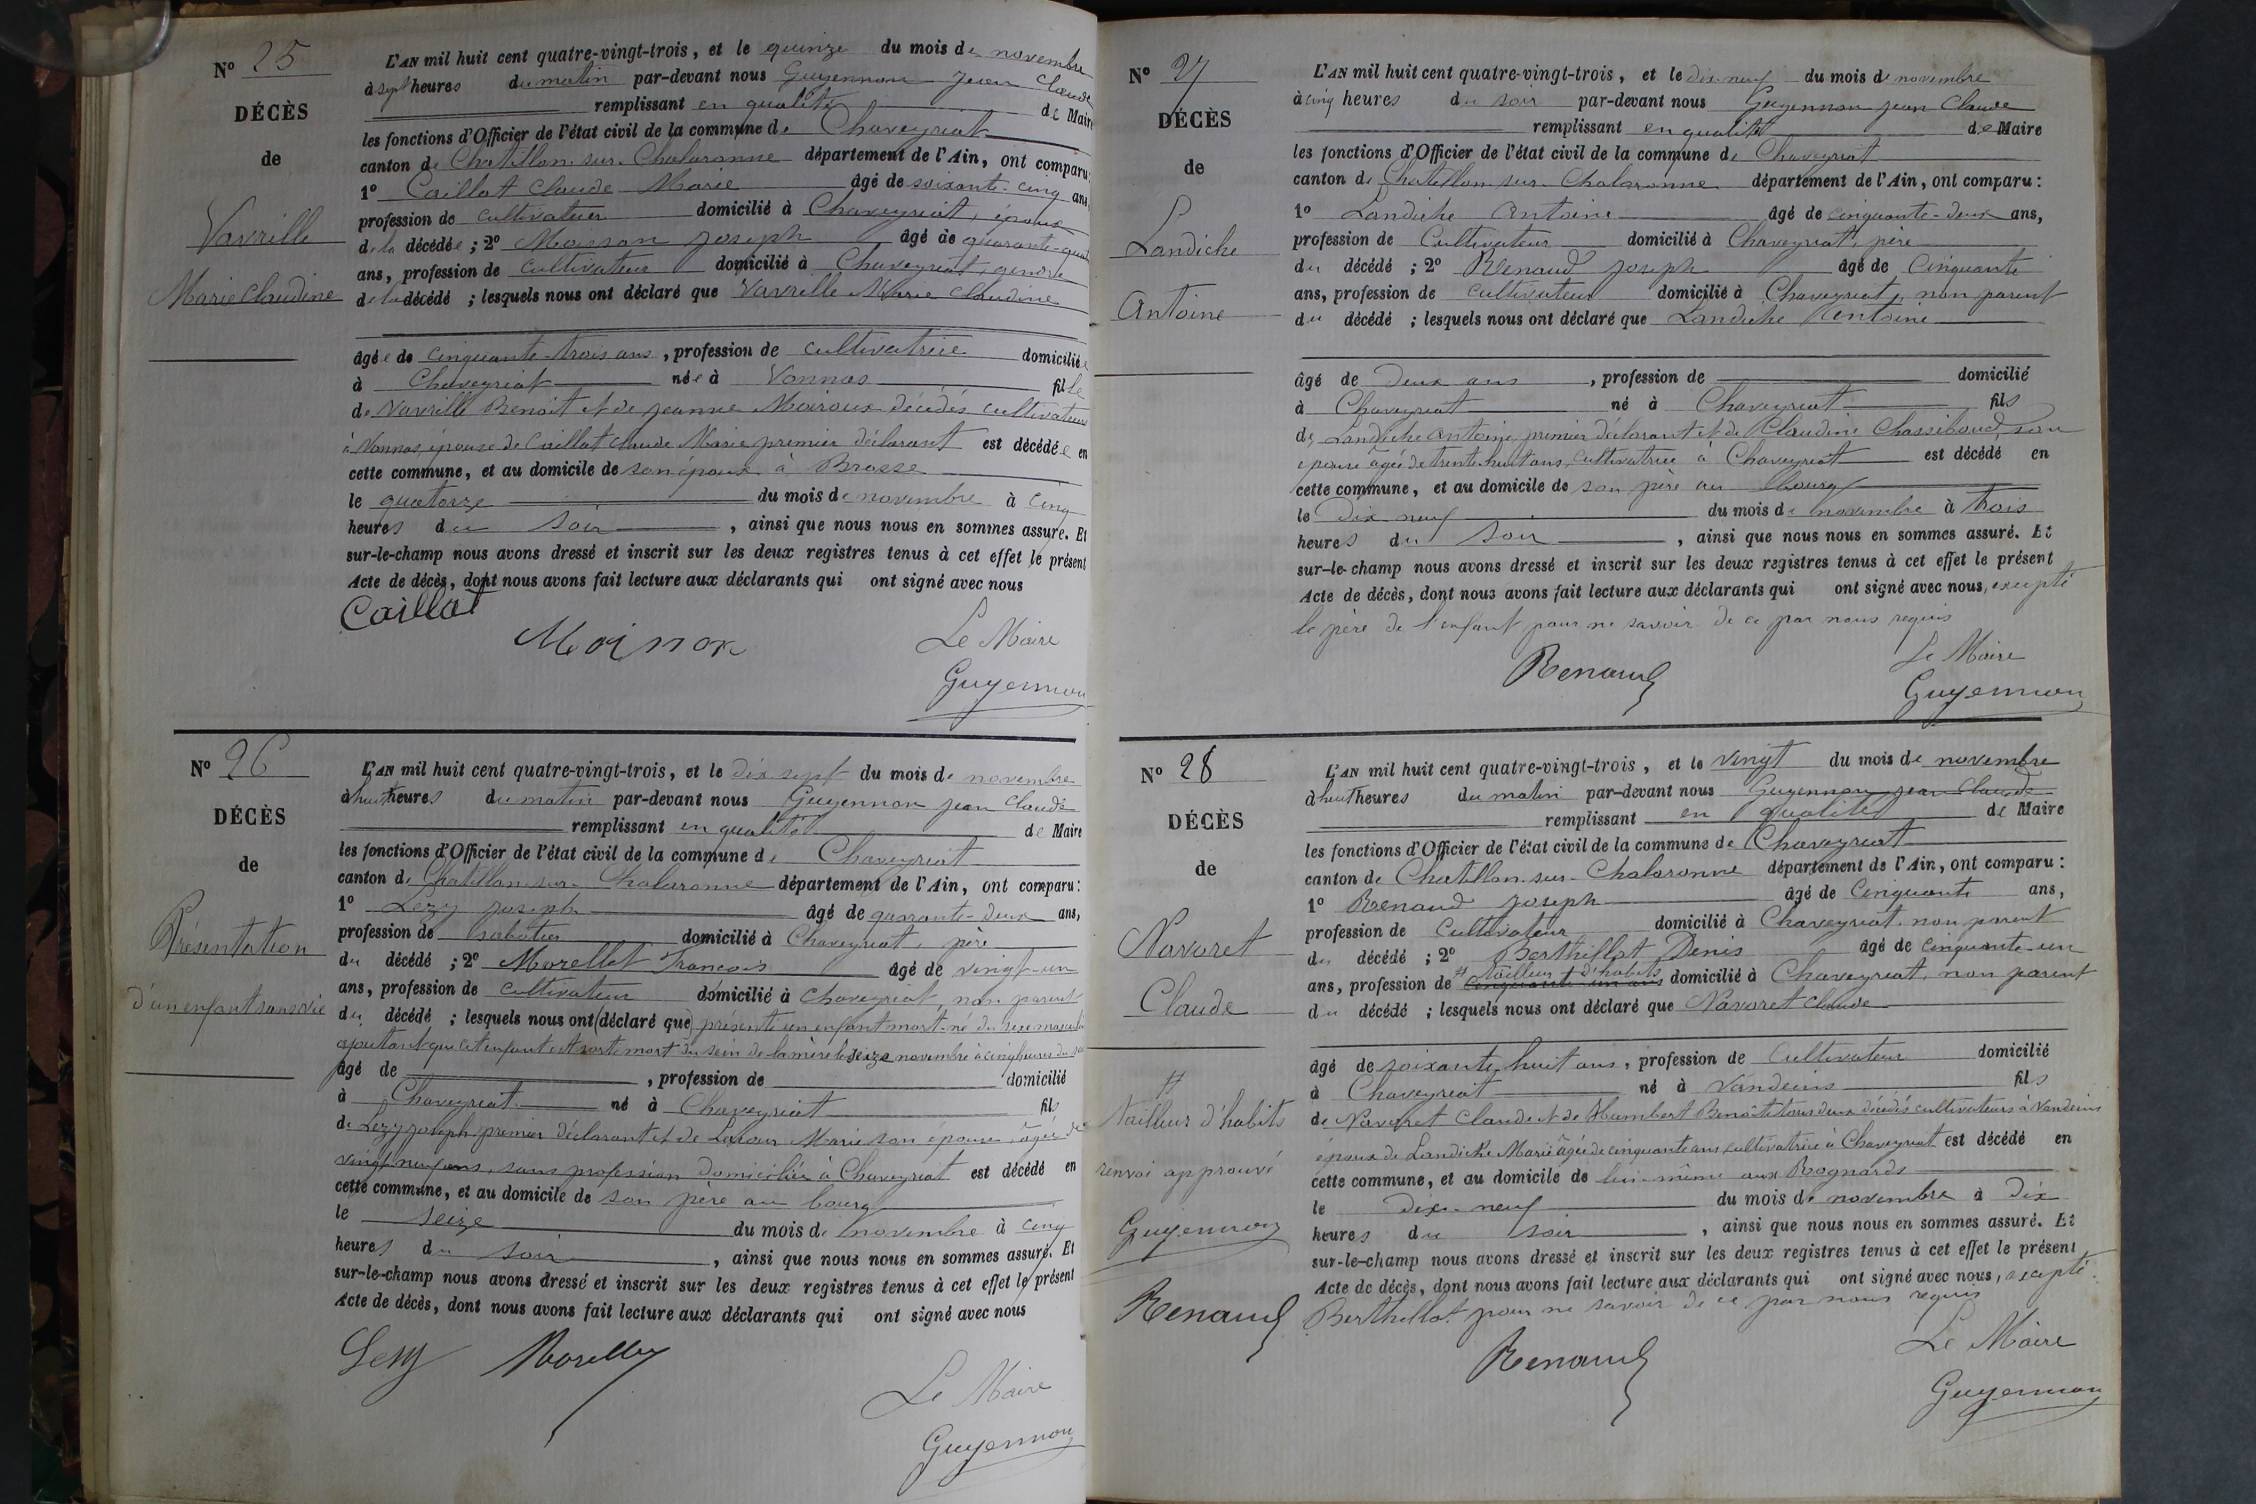 N° 25
DÉCÈS
de
Vavrille
Marie Claudine
L'AN mil huit cent quatre-vingt-trois, et le quinze du mois de novembre
à sept heures du matin par-devant nous Guyennon Jean Claude
remplissant en qualité de Maire
les fonctions d'Officier de l'état civil de la commune de Chaveyriat
canton de Chatillon-sur-Chalaronne département de l'Ain, ont comparu:
1° Caillat Claude Marie âgé de soixante-cinq ans,
profession de cultivateur domicilié à Chaveyriat, époux
de la décédée ; 2° Moisson Joseph âgé de quarante-quatre
ans, profession de cultivateur domicilié à Chaveyriat, gendre
de la décédé ; lesquels nous ont déclaré que Vavrille Marie Claudine
âgée de cinquante-trois ans, profession de cultivatrice domiciliée
à Chaveyriat née à Vonnas fille
de Vavrille Benoit et de Jeanne Moiroux décédés cultivateurs
à Vonnas, épouse de Caillat Claude Marie premier déclarant est décédée en
cette commune, et au domicile de son époux à Brosse
le quatorze du mois de novembre à cinq
heures du soir, ainsi que nous nous en sommes assuré. Et
sur-le-champ nous avons dressé et inscrit sur les deux registres tenus à cet effet le présent
Acte de décès, dont nous avons fait lecture aux déclarants qui ont signé avec nous
Caillat
Le Maire
Guyennon
N° 26
DÉCÈS
de
Présentation
d'un enfant sans vie
L'AN mil huit cent quatre-vingt-trois, et le dix sept du mois de novembre
à huit heures du matin par-devant nous Guyennon Jean Claude
remplissant en qualité de Maire
les fonctions d'Officier de l'état civil de la commune de Chaveyriat
canton de Chatillon-sur-Chalaronne département de l'Ain, ont comparu:
1° Lezy Joseph âgé de quarante-deux ans,
profession de sabotier domicilié à Chaveyriat, père
du décédé ; 2° Morellet François âgé de vingt-un
ans, profession de cultivateur domicilié à Chaveyriat, non parent
du décédé ; lesquels nous ont (déclaré que) présenté un enfant mort-né du sexe masculin
ajoutant que cet enfant est sorti mort du sein de la mère le seize novembre à cinq heures du soir
âgé de , profession de domicilié
à Chaveyriat né à Chaveyriat fils
de Lezy Joseph premier déclarant et de Marie son épouse âgée de
vingt neuf ans, sans profession domiciliée à Chaveyriat est décédé en
cette commune, et au domicile de son père au bourg
le seize du mois de novembre à cinq
heures du soir, ainsi que nous nous en sommes assuré. Et
sur-le-champ nous avons dressé et inscrit sur les deux registres tenus à cet effet le présent
Acte de décès, dont nous avons fait lecture aux déclarants qui ont signé avec nous
Lezy Morellet
Le Maire
Guyennon
N° 27
DÉCÈS
de
Landiche
Antoine
L'AN mil huit cent quatre-vingt-trois, et le dix neuf du mois de novembre
à cinq heures du soir par-devant nous Guyennon Jean Claude
remplissant en qualité de Maire
les fonctions d'Officier de l'état civil de la commune de Chaveyriat
canton de Chatillon-sur-Chalaronne département de l'Ain, ont comparu:
1° Landiche Antoine âgé de cinquante-deux ans,
profession de Cultivateur domicilié à Chaveyriat, père
du décédé ; 2° Renaud Joseph âgé de cinquante
ans, profession de cultivateur domicilié à Chaveyriat, non parent
du décédé ; lesquels nous ont déclaré que Landiche Antoine
âgé de Deux ans, profession de domicilié
à Chaveyriat né à Chaveyriat fils
de Landiche Antoine premier déclarant et de Claudine Chassiboud son
épouse âgée de trente huit ans, cultivatrice à Chaveyriat est décédé en
cette commune, et au domicile de son père au bourg
le Dix neuf du mois de novembre à trois
heures du soir, ainsi que nous nous en sommes assuré. Et
sur-le-champ nous avons dressé et inscrit sur les deux registres tenus à cet effet le présent
Acte de décès, dont nous avons fait lecture aux déclarants qui ont signé avec nous, excepté
le père de l'enfant pour ne savoir de ce par nous requis
Renaud
Le Maire
Guyennon
N° 28
DÉCÈS
de
Navoret
Claude
# Tailleur d'habits
renvoi approuvé
Guyennon
Renaud
L'AN mil huit cent quatre-vingt-trois, et le vingt du mois de novembre
à huit heures du matin par-devant nous Guyennon Jean Claude
remplissant en qualité de Maire
les fonctions d'Officier de l'état civil de la commune de Chaveyriat
canton de Chatillon-sur-Chalaronne département de l'Ain, ont comparu:
1° Renaud Joseph âgé de Cinquante ans,
profession de Cultivateur domicilié à Chaveyriat non parent
du décédé ; 2° Berthillot Denis âgé de cinquante-un
# Tailleur d'habits
ans, profession de cinquante-un ans domicilié à Chaveyriat, non parent
du décédé ; lesquels nous ont déclaré que Navoret Claude
âgé de soixante huit ans, profession de Cultivateur domicilié
à Chaveyriat né à Vandeins fils
de Navoret Claude et de Humbert Benoite tous deux décédés cultivateurs à Vandeins
époux de Landiche Marie âgée de cinquante ans cultivatrice à Chaveyriat est décédé en
cette commune, et au domicile de lui-même aux Rognards
le Dix-neuf du mois de novembre à Dix
heures du soir, ainsi que nous nous en sommes assuré. Et
sur-le-champ nous avons dressé et inscrit sur les deux registres tenus à cet effet le présent
Acte de décès, dont nous avons fait lecture aux déclarants qui ont signé avec nous, excepté
Berthillot pour ne savoir de ce par nous requis
Renaud
Le Maire
Guyennon